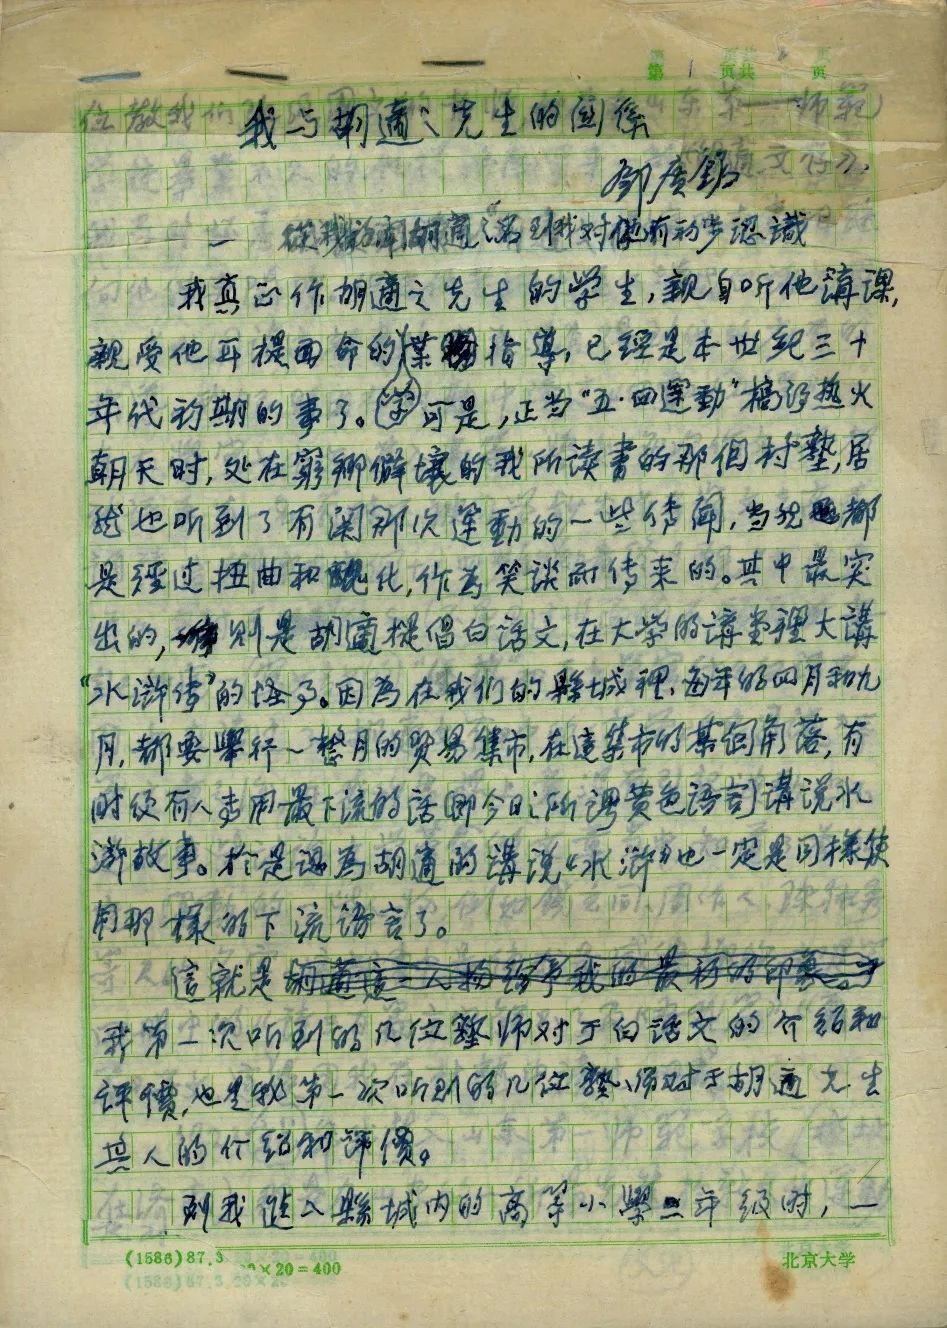 第 1 页共 页
我与胡適之先生的関係
鄧廣銘
一 從我初聞胡適之名到我对他有初步認識
我真正作胡適之先生的学生，親自听他講課，
親受他耳提面命的業指導，已經是本世紀三十
学
年代初期的事了。可是，正当“五·四運動”搞得热火
朝天时，处在窮鄉僻壤的我所读書的那個村塾，居
然也听到了有関那次運動的一些传闻，当然都
是經过扭曲和醜化，作為笑談而传来的。其中最突
出的，則是胡適提倡白话文，在大学的講堂裡大講
“水浒传”的怪事。因為在我们的縣城裡，每年的四月和九
月，都要舉行一整月的贸易集市，在這集市的某個角落，有
时便有人专用最下流的话（即今日之所謂黄色语言）講说水
浒故事。於是認為胡適的講说“水浒”也一定是同樣使
用那樣的下流语言了。
這就是
我第一次听到的几位塾师对于白话文的介绍和
评價，也是我第一次听到的几位塾师对于胡適先生
其人的介绍和評價。
到我進入縣城内的高等小學二年级时，一
(1586)87.3 20×20=400
北京大学